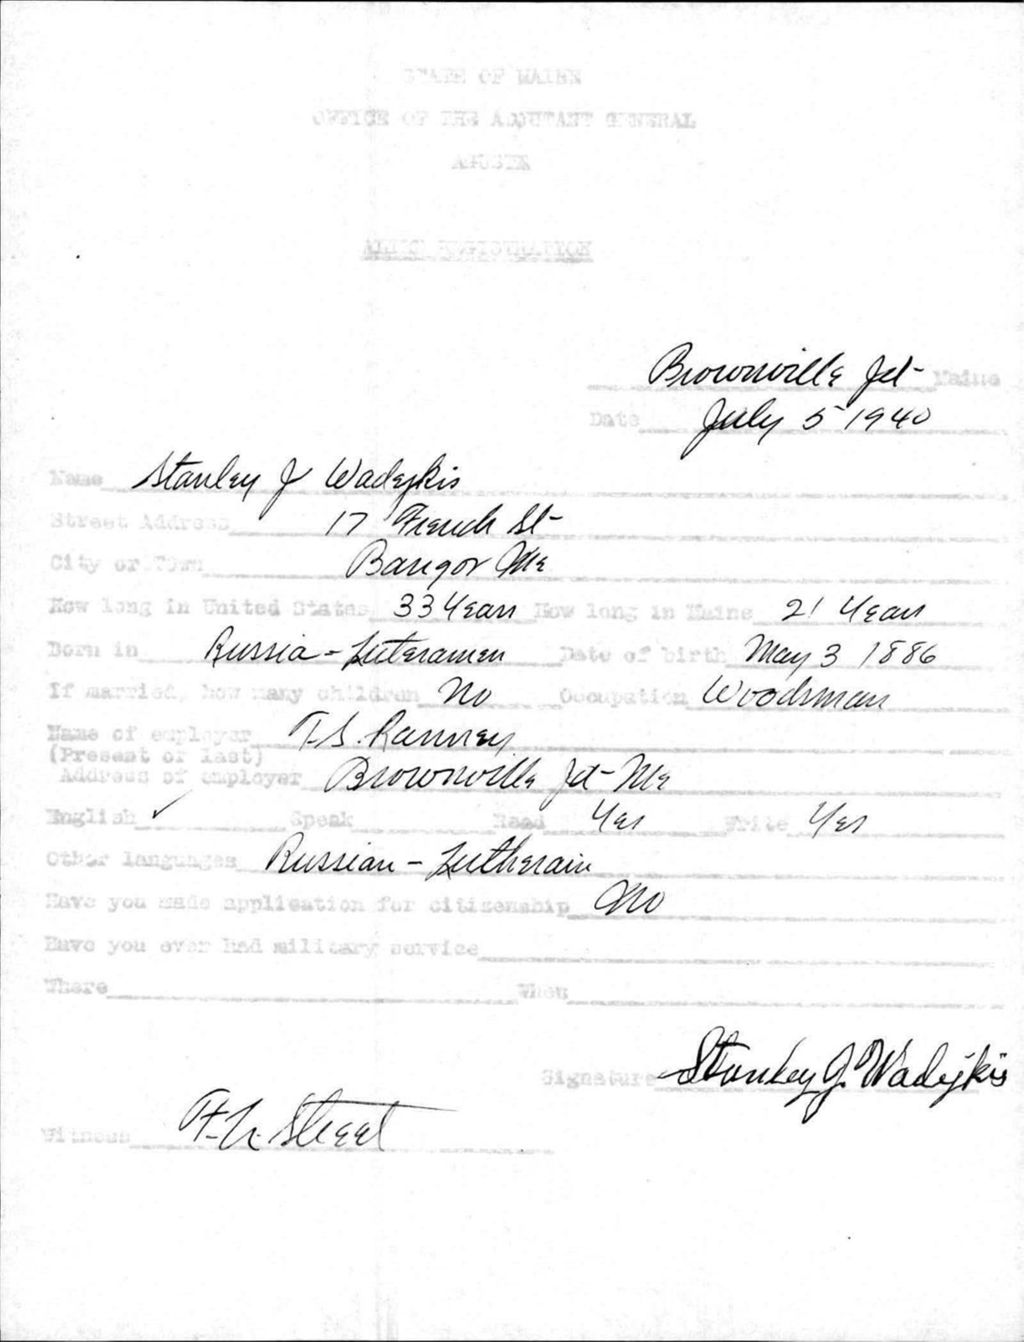 STATE OF MAINE
OFFICE OF THE ADJUTANT GENERAL
AUGUSTA
ALIEN REGISTRATION
Brownville Jct- Maine
Date July 5 1940
Name Stanley J Wadejkis
Street Address 17 French St-
City or Town Bangor Me
How long in United States 33 Years How long in Maine 21 Years
Born in Russia - Luteramen Date of birth May 3 1886
If married, how many children No Occupation Woodsman
Name of employer T.S. Ranney
(Present or last)
Address of employer Brownville Jct- Me
English ✓ Speak Read Yes Write Yes
Other languages Russian - Lutherain
Have you made application for citizenship No
Have you ever had military service
Where When
Signature Stanley J. Wadejkis
Witness Street